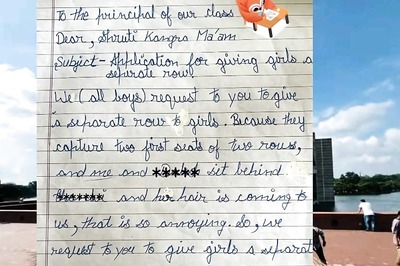 To the principal of our class
Dear, Shruti Kangra Ma'am
Subject - Application for giving girls a
separate row
We (all boys) request to you to give
a separate row to girls. Because they
capture two first seats of two rows,
and me and ***** sit behind.
and her hair is coming to
us, that is so annoying. So, we
request to you to give girls a separat